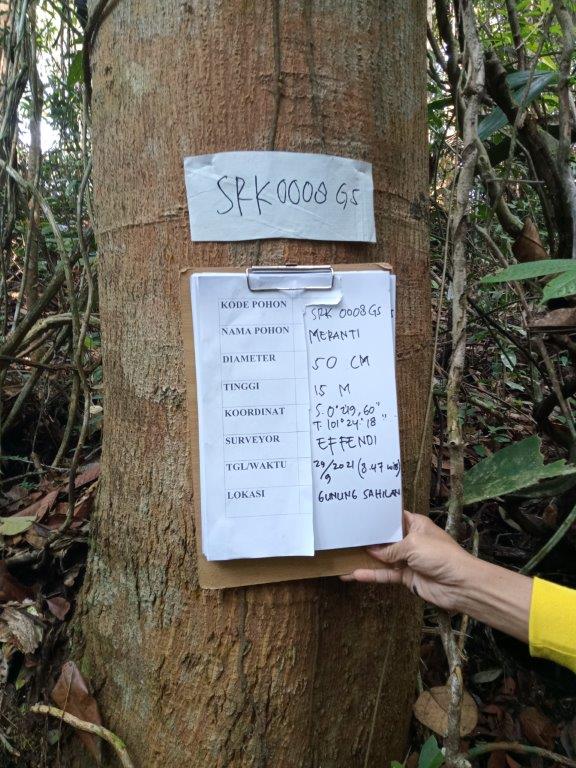 SRK 0008 GS
KODE POHON SRK 0008 GS
NAMA POHON MERANTI
DIAMETER 50 CM
TINGGI 15 M
KOORDINAT S. 0° 2'9, 60"
T. 101° 24' 18"
SURVEYOR EFFENDI
TGL/WAKTU 29/9/2021 (8.47 WIB)
LOKASI GUNUNG SAHILAN